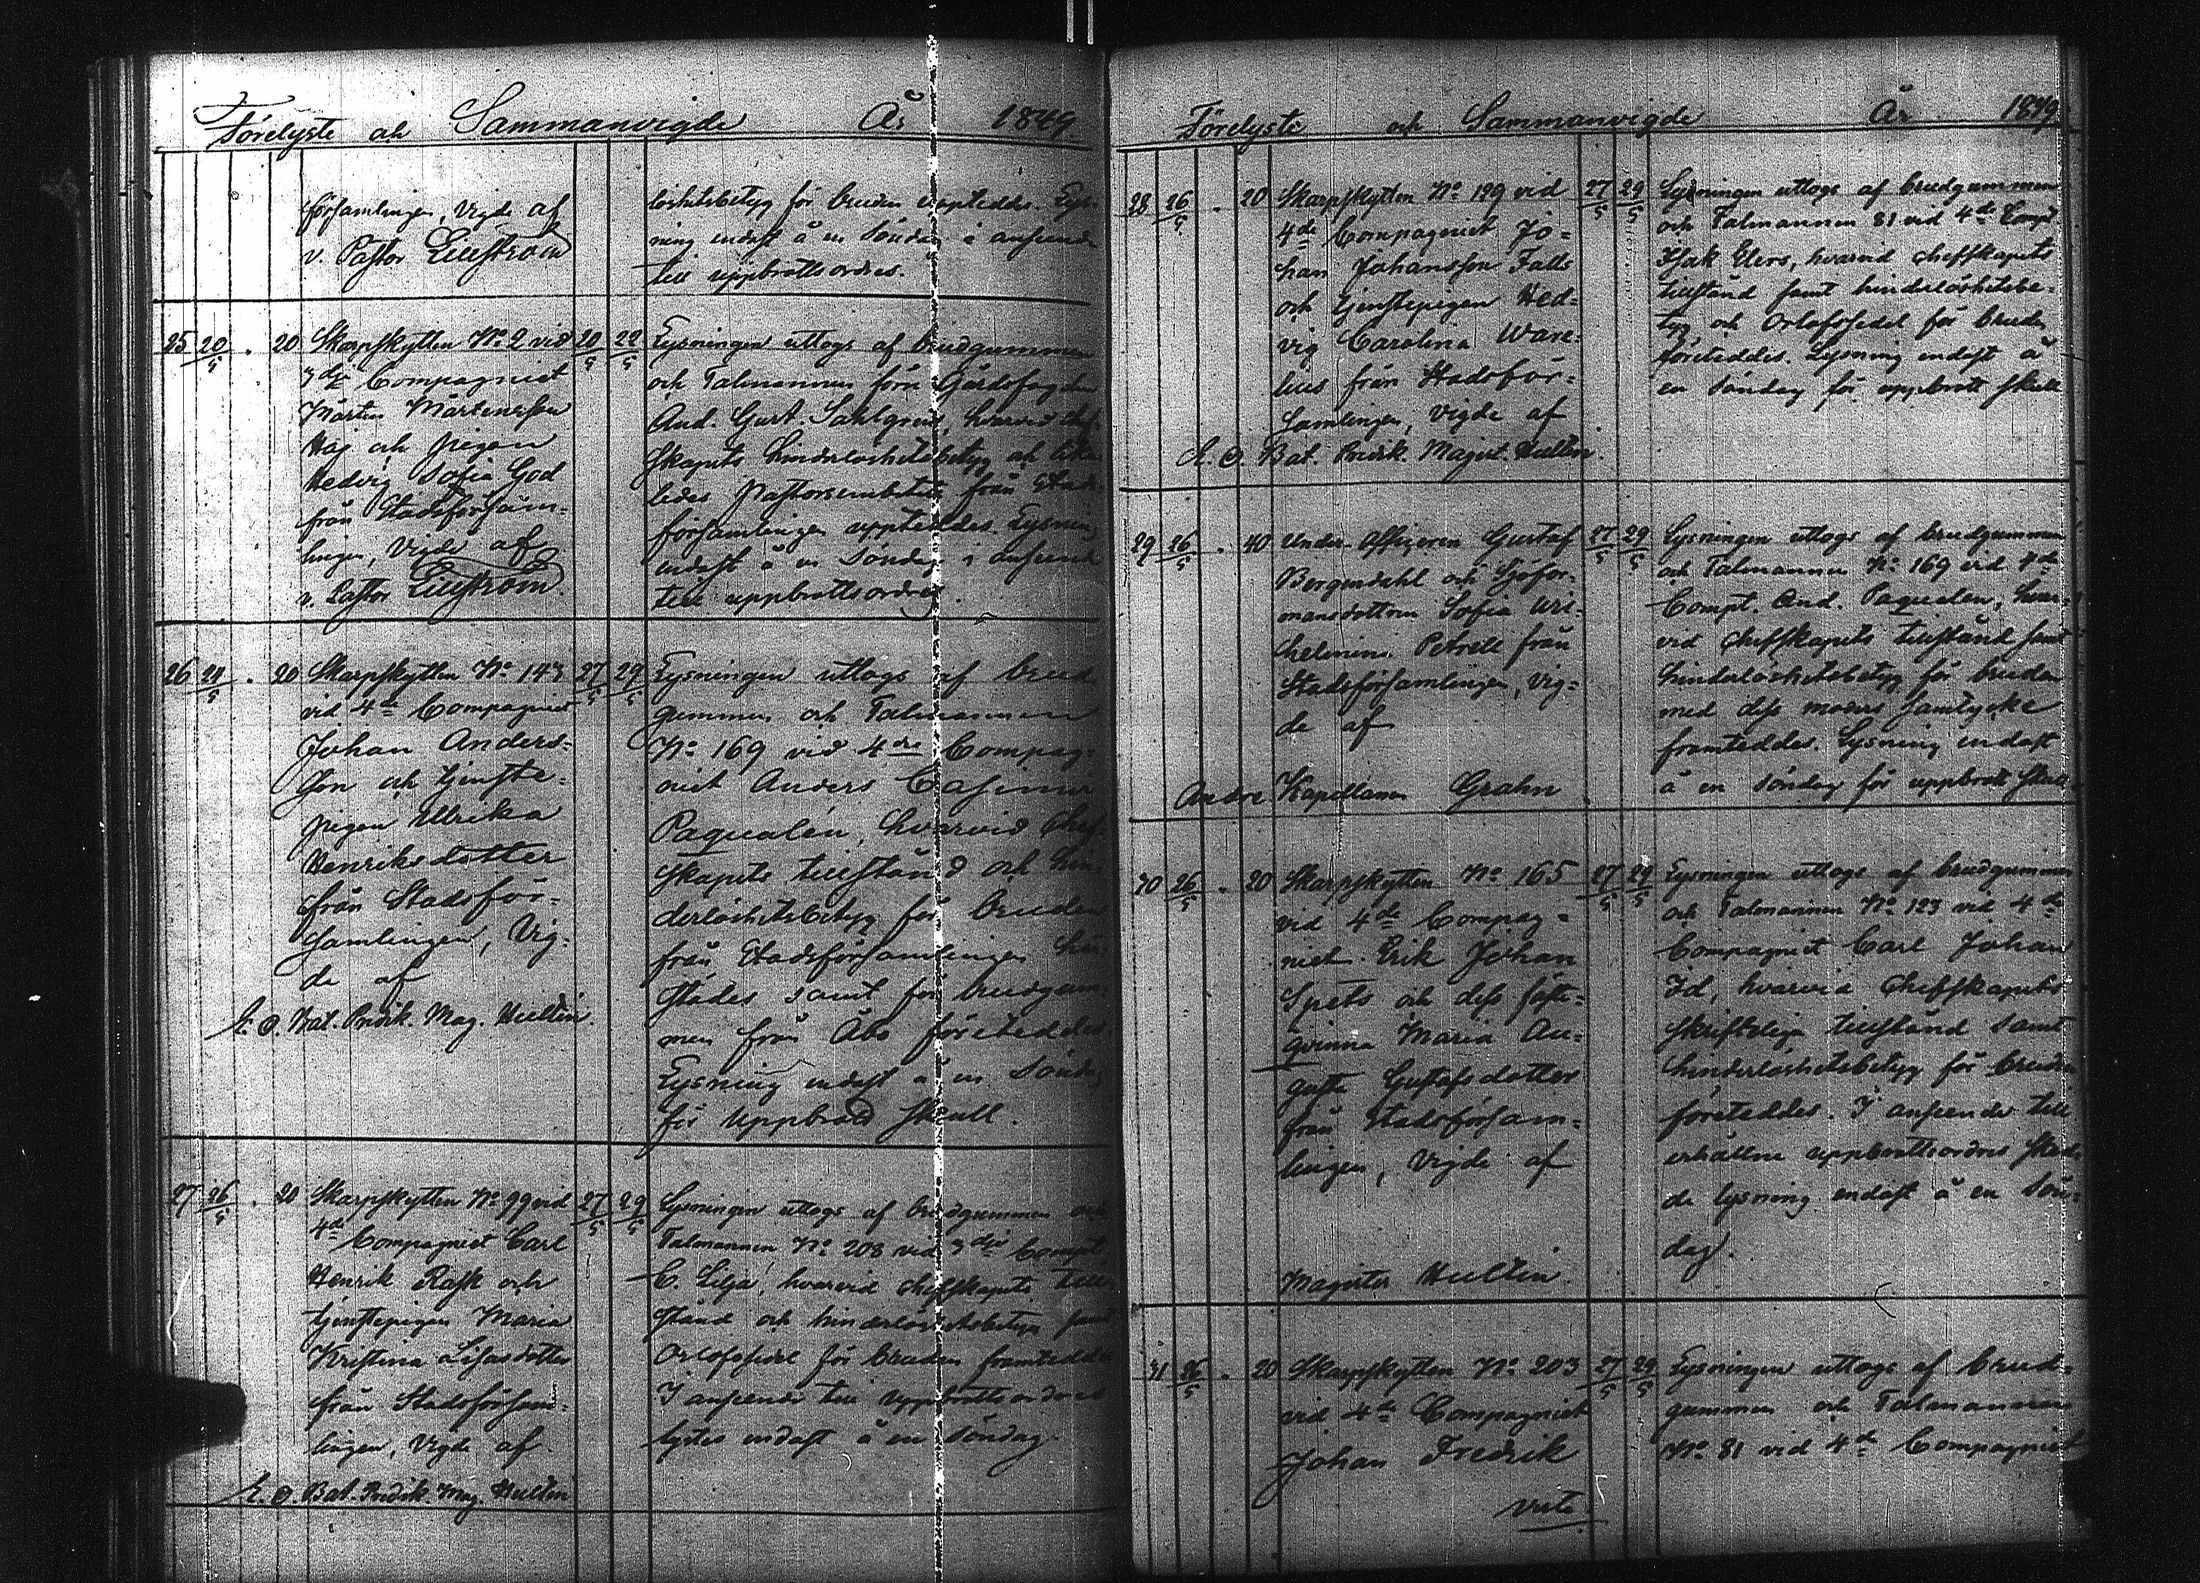 Förelyste och Sammanvigde År 1849
församlingen, Vigde af
v. Pastor Lillström
löshetsbetyg för bruden uppteddes. Lys-
ning endast å en Söndag i anseende
till uppbrottsordres.
25 20/5 . 20 Skarpskytten No 2 vid 20/5 22/5
3dje Compagniet
Mårten Mårtensson
Haj och pigan
Hedvig Sofia God
från Stadsförsam-
lingen, Vigde af
v. Pastor Lillström
Lysningen uttogs af brudgummen
och Talmannen förn Gårdsfogden
And. Gust. Sahlgren, hvarvid Chef-
skapets hinderlöshetsbetyg och
ledes Pastorsembetets från Stads-
församlingen uppteddes. Lysning
endast å en Söndag i anseende
till uppbrottsordres.
26 24/5 . 20 Skarpskytten No 143 27/5 29/5
vid 4de Compagniet
Johan Anders-
son och tjenste-
pigan Ulrika
Henriksdotter
från Stadsför-
samlingen, Vig-
de af
E. O. Bat. Predik. Mag. Hultin.
Lysningen uttogs af brud-
gummen och Talmannen
No 169 vid 4de Compag-
niet Anders Casimir
Paqvalén, hvarvid Chef-
skapets tillstånd och hin-
derlöshetsbetyg för bruden
från Stadsförsamlingen
städes samt för brudgum-
men från Åbo företeddes.
Lysning endast å en Söndag
för uppbrott skull.
27 26/5 . 20 Skarpskytten No 99 vid 27/5 29/5
4de Compagniet Carl
Henrik Rask och
tjenstepigan Maria
Kristina Lisasdotter
från Stadsförsam-
lingen, Vigde af
E. O. Bat. Predik. Mag. Hultin
Lysningen uttogs af brudgummen och
Talmannen No 208 vid 3dje Compt
C. Lilja, hvarvid chefskapets till-
stånd och hinderlöshetsbetyg samt
Orlofssedel för bruden framteddes
I anseende till uppbrottsordres
lystes endast å en Söndag.
Förelyste och Sammanvigde År 1849
28 26/5 . 20 Skarpskytten No 129 vid 27/5 29/5
4de Compagniet Jo-
han Johansson Falls
och tjenstepigan Hed-
vig Carolina Ware-
lius från Stadsför-
samlingen, Vigde af
E. O. Bat. Predik. Magist. Hultin.
Lysningen uttogs af brudgummen
och Talmannen 81 vid 4de Compt
Isak Elers, hvarvid chefskapets
tillstånd samt hinderlöshetsbe-
tyg och Orlofssedel för bruden
företeddes. Lysning endast å
en Söndag för uppbrott skull
29 26/5 . 40 Under Officeren Gustaf 27/5 29/5
Bergendahl och Sjöfor-
mansdottren Sofia Wil-
helmina Petrell från
Stadsförsamlingen, Vig-
de af
Andre Kapellanen Grahn
Lysningen uttogs af brudgummen
och Talmannen No 169 vid 4de
Compt. And. Paqvalén, hvar-
vid chefskapets tillstånd samt
hinderlöshetsbetyg för bruden
med dess moders samtycke
framteddes. Lysning endast
å en Söndag för uppbrott skull.
30 26/5 . 20 Skarpskytten No 165 27/5 29/5
vid 4de Compag-
niet Erik Johan
Spets och dess fäste-
qvinna Maria Au-
gusta Gustafsdotter
från Stadsförsam-
lingen, Vigde af
Magister Hultin
Lysningen uttogs af brudgummen
och Talmannen No 123 vid 4de
Compagniet Carl Johan
Id, hvarvid Chefskapets
skriftliga tillstånd samt
hinderlöshetsbetyg för bruden
företeddes. I anseende till
erhållne uppbrottsordres sked-
de lysning endast å en Sön-
dag.
31 26/5 . 20 Skarpskytten No 203 27/5 29/5
vid 4de Compagniet
Johan Fredrik
vide
Lysningen uttogs af brud-
gummen och Talmannen
No 81 vid 4de Compagniet